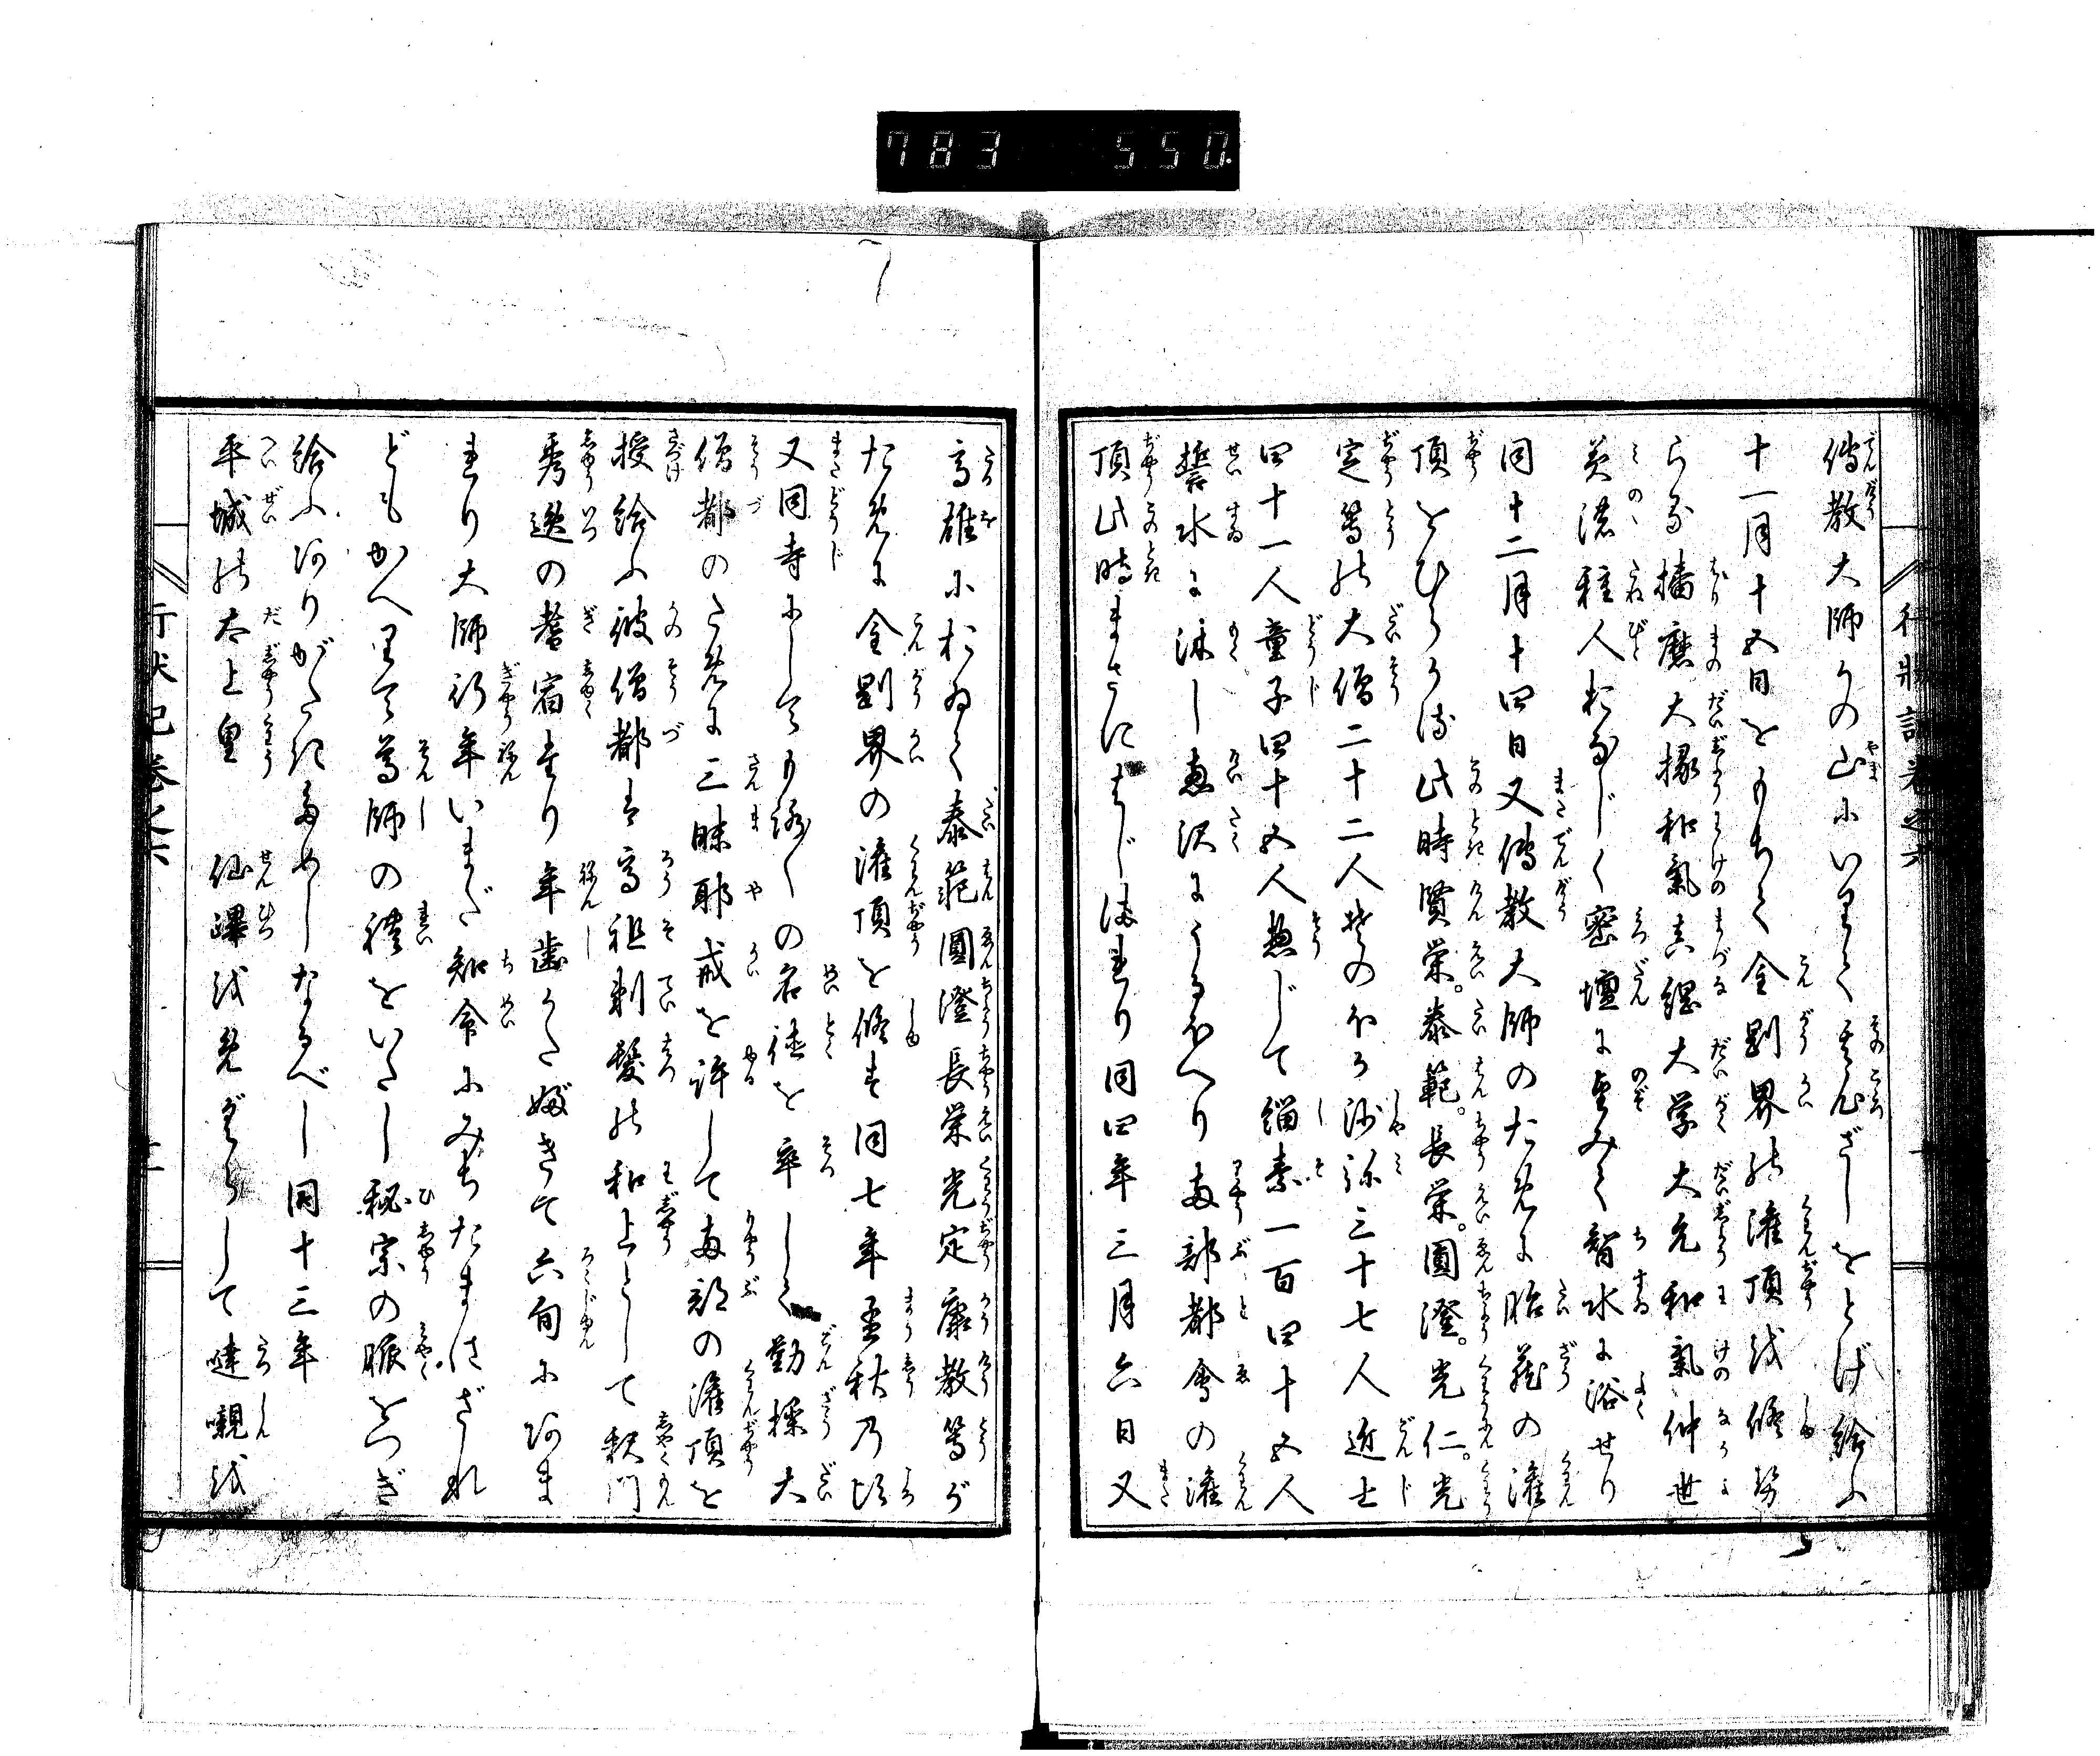 783 550.
行状記巻之六
傳教大師かの山にいりて其心ざしをとげ給ふ
十一月十五日をもちて金剛界の灌頂を修努
らる播磨大掾和氣真綱大学大允和氣仲世
美濃種人おなじく密壇に望みて智水に浴せり
同十二月十四日又傳教大師のために胎蔵の灌
頂をひらかる此時賢栄。泰範。長栄。圓澄。光仁。光
定等の大僧二十二人其のほか沙弥三十七人近士
四十一人童子四十五人惣じて緇素一百四十五人
誓水に沐し恵沢にうるほへり両部都會の灌
頂此時まさにはじまれり同四年三月六日又
高雄におゐて泰範圓澄長栄光定康教等が
ために金剛界の灌頂を修す同七年孟秋乃比
又同寺にして諸の名徳を率して勤操大
僧都のために三昧耶戒を許して両部の灌頂を
授給ふ彼僧都は高祖剃髪の和上として釈門
秀逸の耆宿なり年歯かたぶきて六旬にあま
れり大師行年いまだ知命にみちたまはざれ
どもかへりて尊師の禮をいたし秘宗の脈をつぎ
給ふありがたきためしなるべし同十三年
平城の太上皇 仙蹕をめぐらして達嚫を
行状記巻之六